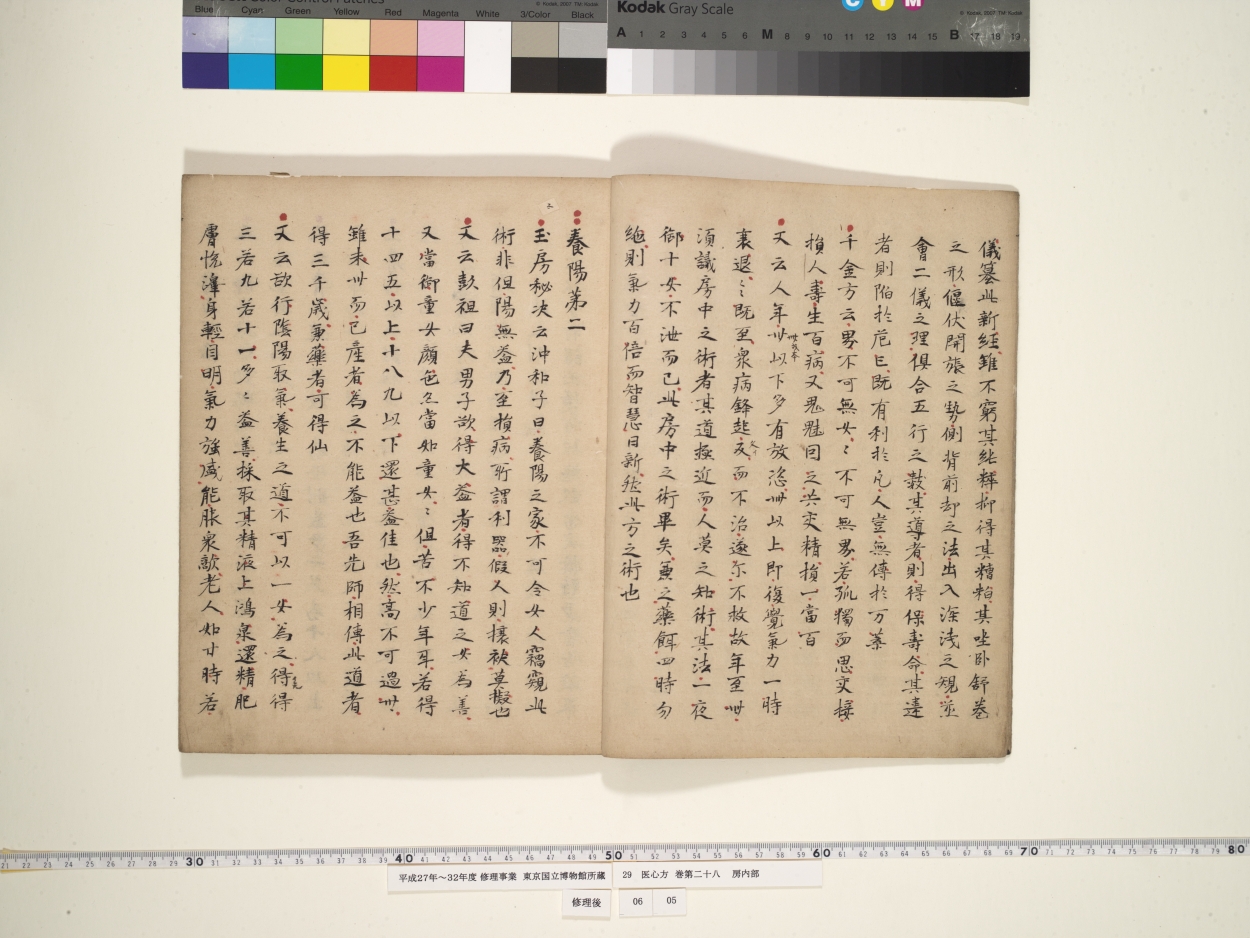 Blue Cyan Green Yellow Red Magenta White 3/Color Black
Kodak Gray Scale
C Y M
A 1 2 3 4 5 6 M 8 9 10 11 12 13 14 15 B 17 18 19
儀纂此新經雖不窮其純粹抑得其糟粕其坐卧舒卷
之形偃伏開張之勢側背前却之法出入深淺之規並
會二儀之理俱合五行之數其導者則得保壽命其違
者則陥於危亡既有利於凢人豈無傳於万葉
千金方云男不可無女〻不可無男若孤獨而思交接
損人壽生百病又鬼魅因之共交精損一當百
又云人年卌以下多有放恣卌以上即復覺氣力一時
衰退〻既至衆病鋒起久而不治遂尓不救故年至卌
湏識房中之術者其道極近而人莫之知術其法一夜
御十女不泄而已此房中之術畢矣兼之藥餌四時勿
絶則氣力百倍而智慧日新然此方之術也
養陽第二
玉房秘决云沖和子曰養陽之家不可令女人竊窺此
術非但陽無益乃至損病所謂利器假人則攘袂莫擬也
又云彭祖曰夫男子欲得大益者得不知道之女為善
又當御童女顔色亦當如童女〻但苦不少年耳若得
十四五以上十八九以下還甚益佳也然高不可過卅
雖未卅而已産者為之不能益也吾先師相傳此道者
得三千歳兼藥者可得仙
又云欲行陰陽取氣養生之道不可以一女為之得得
三若九若十一多〻益善採取其精液上鴻泉還精肥
膚悅澤身輕目明氣力強盛能服衆敵老人如廿時若
30 40 50 60 70 80
平成27年～32年度 修理事業 東京国立博物館所蔵
29 医心方 巻第二十八 房内部
修理後
06 05